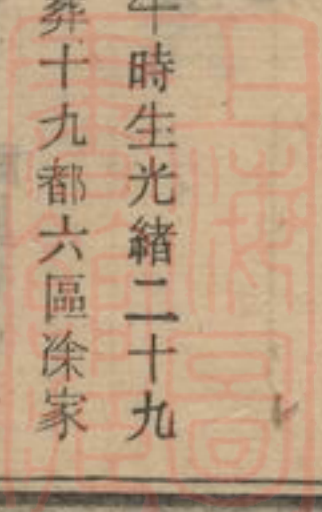 午時生光緒二十九
葬十九都六區涂家